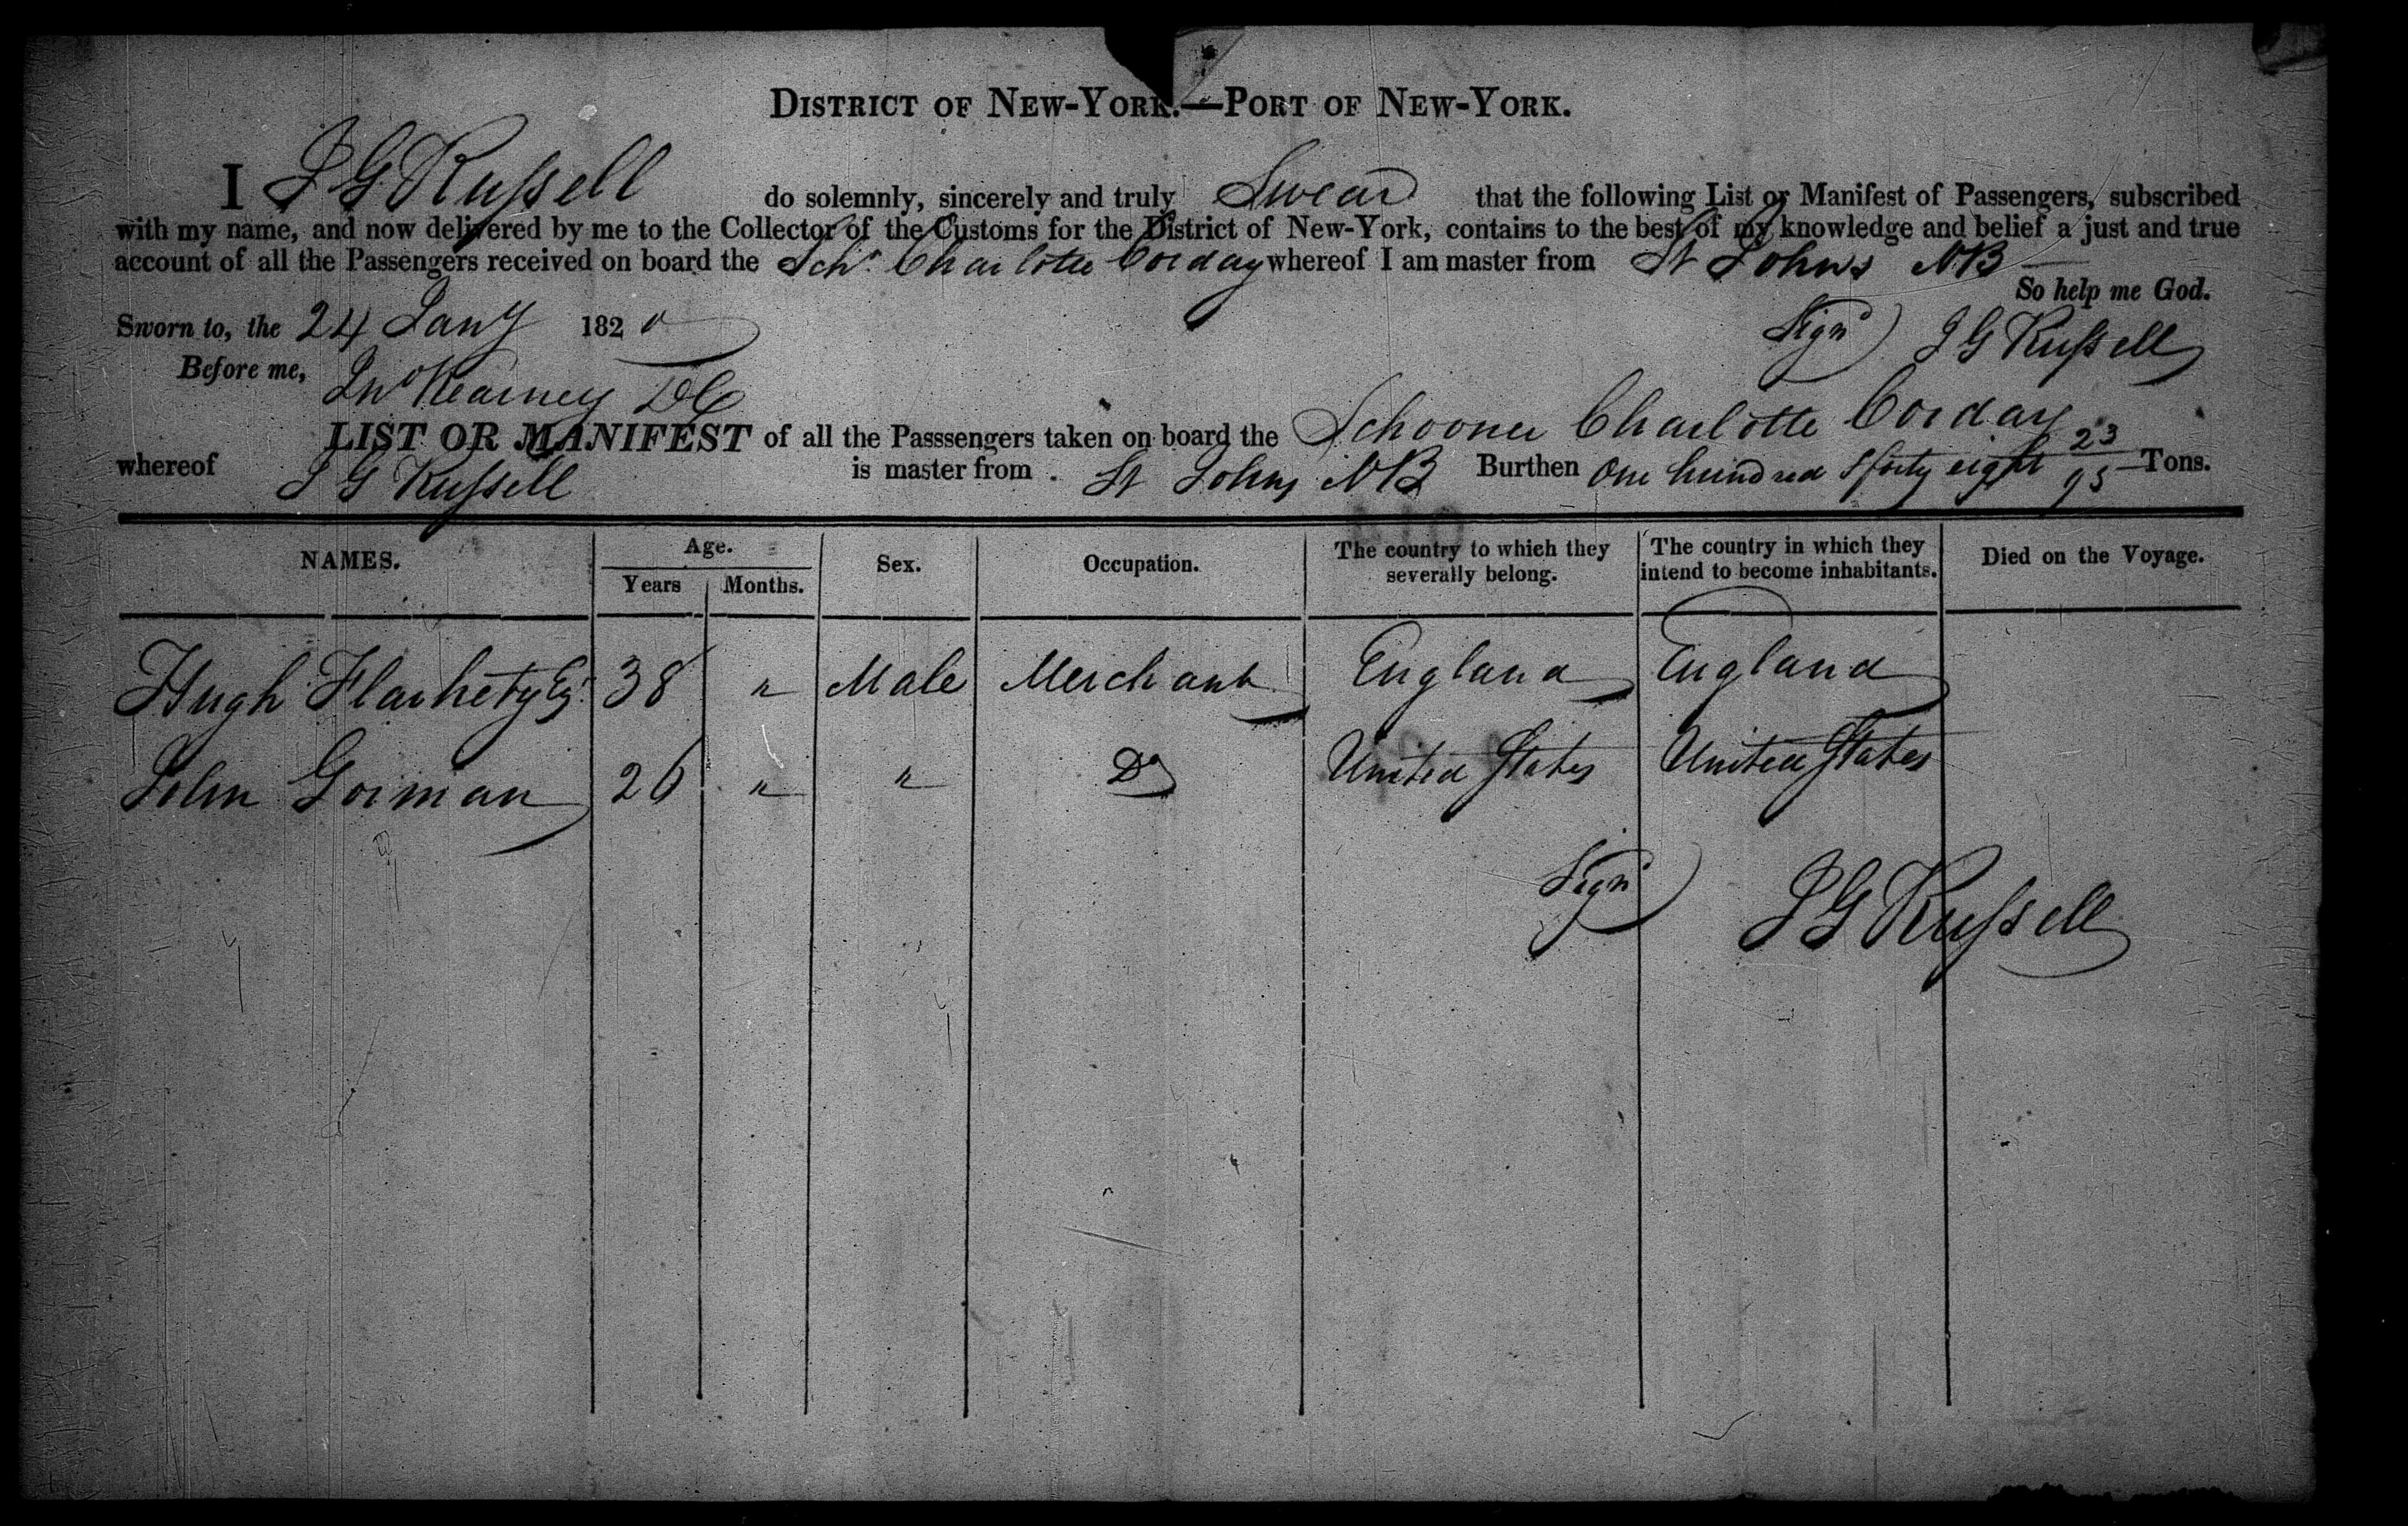 DISTRICT OF NEW-YORK.—PORT OF NEW-YORK.
I J G Russell do solemnly, sincerely and truly Swear that the following List or Manifest of Passengers, subscribed
with my name, and now delivered by me to the Collector of the Customs for the District of New-York, contains to the best of my knowledge and belief a just and true
account of all the Passengers received on board the Schr Charlotte Corday whereof I am master from St Johns NB
So help me God.
Sworn to, the 24 Jany 1820 Sign'd J G Russell
Before me, Jno Kearney DC
LIST OR MANIFEST of all the Passsengers taken on board the Schooner Charlotte Corday
whereof J G Russell is master from St Johns NB Burthen One hundred & forty eight 23/95 Tons.
NAMES. Age. Years Months. Sex. Occupation. The country to which they severally belong. The country in which they intend to become inhabitants. Died on the Voyage.
Hugh Flarhety Esqr 38 " Male Merchant England England
John Gorman 26 " " Do United States United States
Sign'd J G Russell